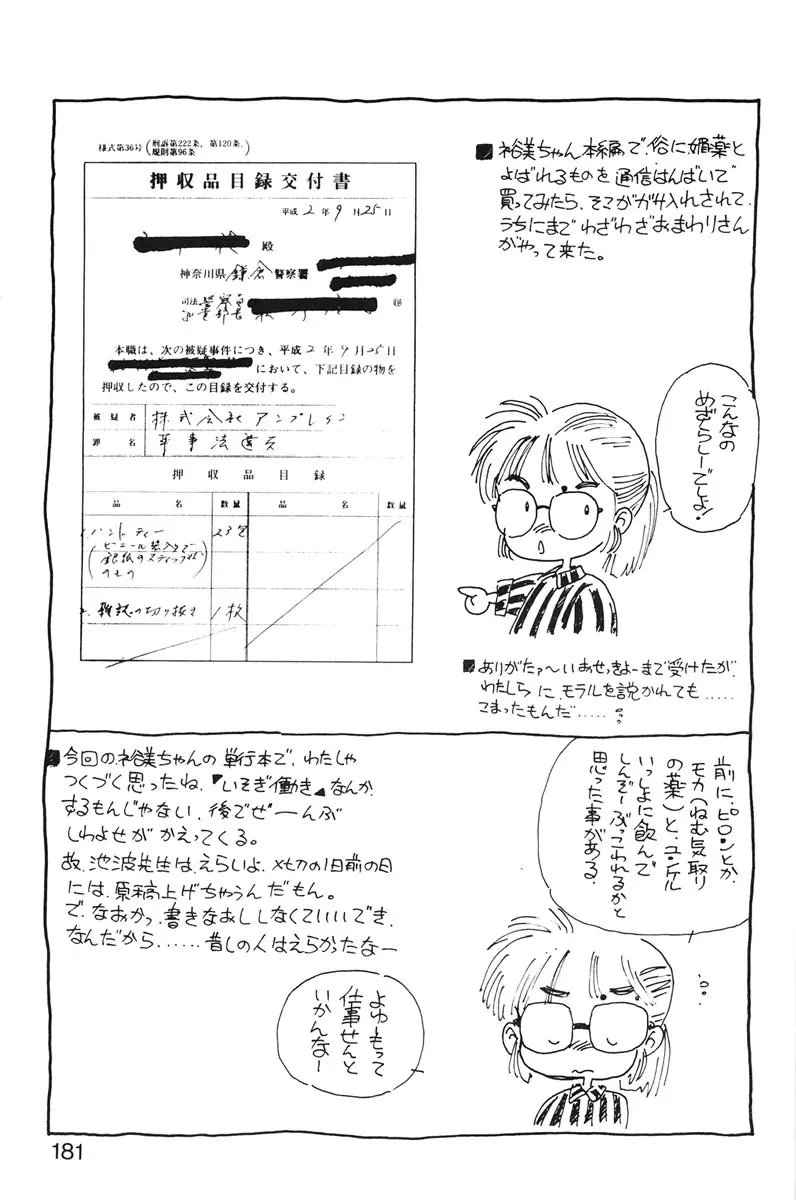 ■裕美ちゃん本編で、俗に媚薬と
よばれるものを通信はんばいで
買ってみたら、そこがガサ入れされて、
うちにまでわざわざおまわりさん
がやって来た。
様式第36号(刑訴第222条、第120条、
規則第96条)
押収品目録交付書
平成2年9月25日
殿
神奈川県鎌倉警察署
司法
本職は、次の被疑事件につき、平成2年9月25日
において、下記目録の物を
押収したので、この目録を交付する。
被疑者 株式会社アンブレイン
罪名 薬事法違反
押収品目録
品名 数量 品名 数量
1. ハントティー 23包
(ビニール袋入りで
銀紙のスティック状
のもの)
2. 雑誌の切り抜き 1枚
こんなの
めずらしーでしょ!
■ありがたァ〜いおせっきょーまで受けたが、
わたしらに、モラルを説かれても.....
こまったもんだ.....
前に、ピロンとか、
モカ(ねむ気取り
の薬)と、ユンケル
いっしょに飲んで
しんぞーぶっこわれるかと
思った事がある.
■今回の裕美ちゃんの単行本で、わたしゃ
つくづく思ったね、『いそぎ働き』なんか、
するもんじゃない、後でぜーんぶ
しわよせがかえってくる。
故、池波先生は、えらいよ、〆切の1日前の日
には、原稿上げちゃうんだもん。
で、なおかつ、書きなおししなくていいでき、
なんだから、......昔しの人はえらかったなー
よゆーもって
仕事せんと
いかんなー
181